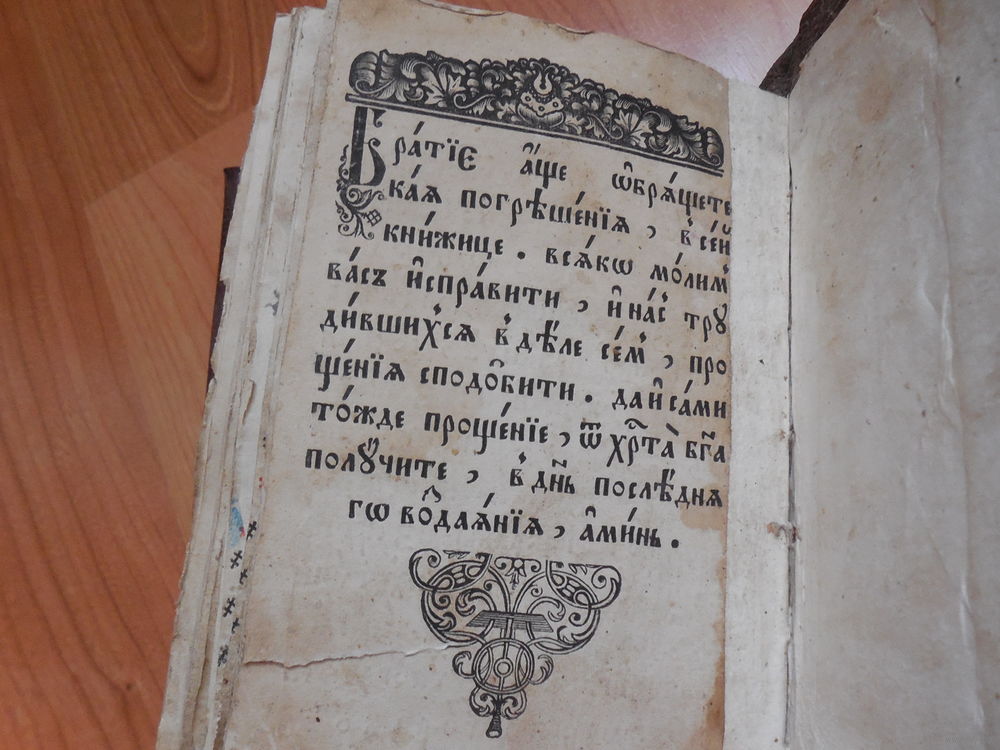 Бра́тїѐ а҆́ще ѡ҆брѧ́щете
ка́ѧ погрѣше́нїѧ , в̾ се́й
кни́жице . всѧ́кѡ мо́лим̾
ва́съ и҆спра́вити , и҆ на́с̾ трꙋ
ди́вшихсѧ в̾ дѣ́ле се́м̾ , про
ще́нїѧ сподо́бити . да и҆ са́ми
то́жде проще́нїе , ѿ хрⷭ҇та̀ бг҃а
полꙋ́чите , в̾ дн҃ь послѣ́днѧ
гѡ воⷥдаѧ́нїѧ , а҆ми́нь .